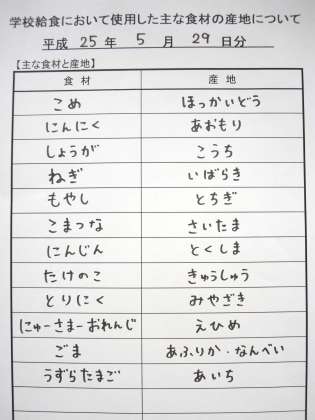 学校給食において使用した主な食材の産地について
平成 25 年 5 月 29 日分
【主な食材と産地】
食材 産地
こめ ほっかいどう
にんにく あおもり
しょうが こうち
ねぎ いばらき
もやし とちぎ
こまつな さいたま
にんじん とくしま
たけのこ きゅうしゅう
とりにく みやざき
にゅーさまーおれんじ えひめ
ごま あふりか・なんべい
うずらたまご あいち